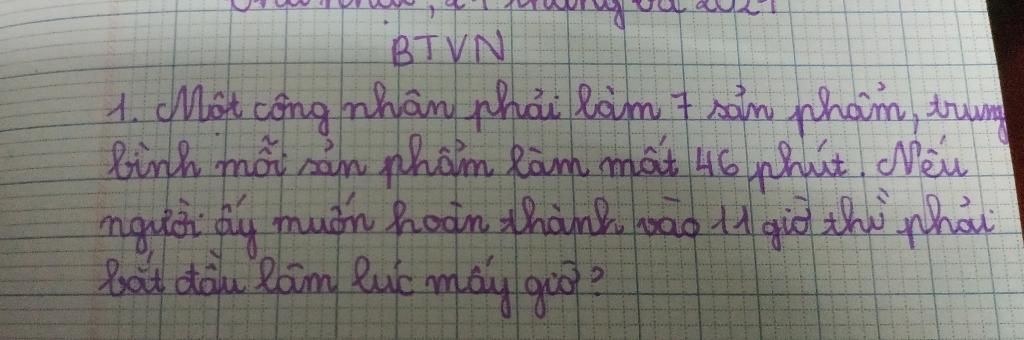 Chủ nhật, 24 tháng 10 2021
BTVN
1. Một công nhân phải làm 7 sản phẩm, trung
bình mỗi sản phẩm làm mất 46 phút. Nếu
người ấy muốn hoàn thành vào 11 giờ thì phải
bắt đầu làm lúc mấy giờ?